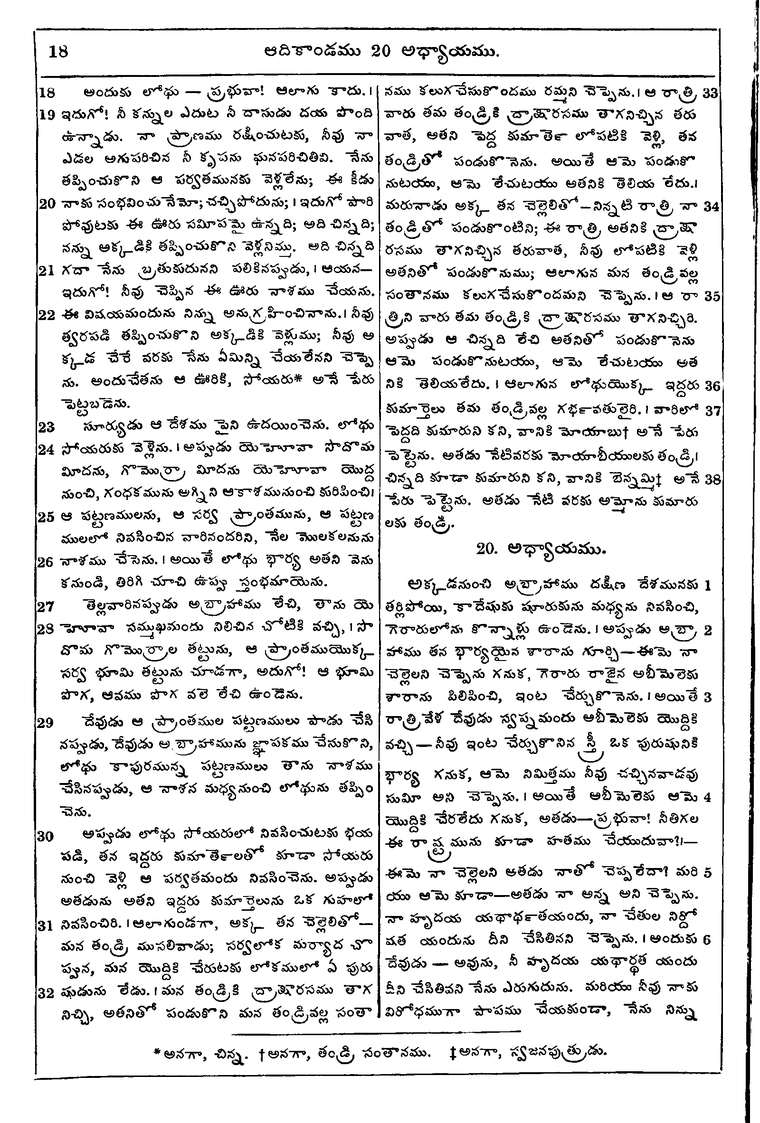 18
ఆదికాండము 20 అధ్యాయము.
18 అందుకు లోథు — ప్రభువా! ఆలాగు కాదు.।
19 ఇదుగో! నీ కన్నుల ఎదుట నీ దాసుడు దయ పొంది
ఉన్నాడు. నా ప్రాణము రక్షించుటకు, నీవు నా
ఎడల అగుపరిచిన నీ కృపను ఘనపరిచితివి. నేను
తప్పించుకొని ఆ పర్వతమునకు వెళ్లలేను; ఈ కీడు
20 నాకు సంభవించునేమో; చచ్చిపోదును;। ఇదుగో పారి
పోవుటకు ఈ ఊరు సమీపమై ఉన్నది; అది చిన్నది;
నన్ను అక్కడికి తప్పించుకొని వెళ్లనిమ్ము. అది చిన్నది
21 గదా నేను బ్రతుకుదునని పలికినప్పుడు,। ఆయన—
ఇదుగో! నీవు చెప్పిన ఈ ఊరు నాశము చేయను.
22 ఈ విషయమందును నిన్ను అనుగ్రహించినాను.। నీవు
త్వరపడి తప్పించుకొని అక్కడికి వెళ్లుము; నీవు అ
క్కడ చేరే వరకు నేను ఏమిన్ని చేయలేనని చెప్పె
ను. అందుచేతను ఆ ఊరికి, సోయరు* అనే పేరు
పెట్టబడెను.
23 సూర్యుడు ఆ దేశము పైని ఉదయించెను. లోథు
24 సోయరుకు వెళ్లెను.। అప్పుడు యెహోవా సొదొమ
మీదను, గొమొర్రా మీదను యెహోవా యొద్ద
నుంచి, గంధకమును అగ్నిని ఆకాశమునుంచి కురిపించి।
25 ఆ పట్టణములను, ఆ సర్వ ప్రాంతమును, ఆ పట్టణ
ములలో నివసించిన వారినందరిని, నేల మొలకలనును
26 నాశము చేసెను.। అయితే లోథు భార్య అతని వెను
కనుండి, తిరిగి చూచి ఉప్పు స్తంభమాయెను.
27 తెల్లవారినప్పుడు అబ్రాహాము లేచి, తాను యె
28 హోవా సమ్ముఖమందు నిలిచిన చోటికి వచ్చి,। సొ
దొమ గొమొర్రాల తట్టును, ఆ ప్రాంతముయొక్క
సర్వ భూమి తట్టును చూడగా, అదుగో! ఆ భూమి
పొగ, ఆవము పొగ వలె లేచి ఉండెను.
29 దేవుడు ఆ ప్రాంతముల పట్టణములు పాడు చేసి
నప్పుడు, దేవుడు అబ్రాహామును జ్ఞాపకము చేసుకొని,
లోథు కాపురమున్న పట్టణములు తాను నాశము
చేసినప్పుడు, ఆ నాశన మధ్యనుంచి లోథును తప్పిం
చెను.
30 అప్పుడు లోథు సోయరులో నివసించుటకు భయ
పడి, తన ఇద్దరు కుమార్తెలతో కూడా సోయరు
నుంచి వెళ్లి ఆ పర్వతమందు నివసించెను. అప్పుడు
అతడును అతని ఇద్దరు కుమార్తెలును ఒక గుహలో
31 నివసించిరి.। ఆలాగుండగా, అక్క తన చెల్లెలితో—
మన తండ్రి ముసలివాడు; సర్వలోక మర్యాద చొ
ప్పున, మన యొద్దికి చేరుటకు లోకములో ఏ పురు
32 షుడును లేడు.। మన తండ్రికి ద్రాక్షారసము తాగ
నిచ్చి, అతనితో పండుకొని మన తండ్రివల్ల సంతా
నము కలుగచేసుకొందము రమ్మని చెప్పెను.। ఆ రాత్రి 33
వారు తమ తండ్రికి ద్రాక్షారసము తాగనిచ్చిన తరు
వాత, అతని పెద్ద కుమార్తె లోపటికి వెళ్లి, తన
తండ్రితో పండుకొనెను. అయితే ఆమె పండుకొ
నుటయు, ఆమె లేచుటయు అతనికి తెలియ లేదు.।
మరునాడు అక్క తన చెల్లెలితో—నిన్నటి రాత్రి నా 34
తండ్రితో పండుకొంటిని; ఈ రాత్రి, అతనికి ద్రాక్షా
రసము తాగనిచ్చిన తరువాత, నీవు లోపటికి వెళ్లి
అతనితో పండుకొనుము; ఆలాగున మన తండ్రివల్ల
సంతానము కలుగచేసుకొందమని చెప్పెను.। ఆ రా 35
త్రిని వారు తమ తండ్రికి ద్రాక్షారసము తాగనిచ్చిరి.
అప్పుడు ఆ చిన్నది లేచి అతనితో పండుకొనెను
ఆమె పండుకొనుటయు, ఆమె లేచుటయు అత
నికి తెలియలేదు.। ఆలాగున లోథుయొక్క ఇద్దరు 36
కుమార్తెలు తమ తండ్రివల్ల గర్భవతులైరి.। వారిలో 37
పెద్దది కుమారుని కని, వానికి మోయాబు† అనే పేరు
పెట్టెను. అతడు నేటివరకు మోయాబీయులకు తండ్రి।
చిన్నది కూడా కుమారుని కని, వానికి బెన్నమ్మి‡ అనే 38
పేరు పెట్టెను. అతడు నేటి వరకు అమ్మోను కుమారు
లకు తండ్రి.
20. అధ్యాయము.
అక్కడనుంచి అబ్రాహాము దక్షిణ దేశమునకు 1
తర్లిపోయి, కాదేషుకు షూరుకును మధ్యను నివసించి,
గెరారులోను కొన్నాళ్లు ఉండెను.। అప్పుడు అబ్రా 2
హాము తన భార్యయైన శారాను గూర్చి—ఈమె నా
చెల్లెలని చెప్పెను గనుక, గెరారు రాజైన అబీమెలెకు
శారాను పిలిపించి, ఇంట చేర్చుకొనెను.। అయితే 3
రాత్రివేళ దేవుడు స్వప్నమందు అబీమెలెకు యొద్దికి
వచ్చి — నీవు ఇంట చేర్చుకొనిన స్త్రీ ఒక పురుషునికి
భార్య గనుక, ఆమె నిమిత్తము నీవు చచ్చినవాడవు
సుమీ అని చెప్పెను.। అయితే అబీమెలెకు ఆమె 4
యొద్దికి చేరలేదు గనుక, అతడు—ప్రభువా! నీతిగల
ఈ రాష్ట్రమును కూడా హతము చేయుదువా?।—
ఈమె నా చెల్లెలని అతడు నాతో చెప్పలేదా? మరి 5
యు ఆమె కూడా—అతడు నా అన్న అని చెప్పెను.
నా హృదయ యథార్థతయందు, నా చేతుల నిర్దో
షత యందును దీని చేసితినని చెప్పెను.। అందుకు 6
దేవుడు — అవును, నీ హృదయ యథార్థత యందు
దీని చేసితివని నేను ఎరుగుదును. మరియు నీవు నాకు
విరోధముగా పాపము చేయకుండా, నేను నిన్ను
*అనగా, చిన్న. †అనగా, తండ్రి సంతానము. ‡అనగా, స్వజనపుత్రుడు.